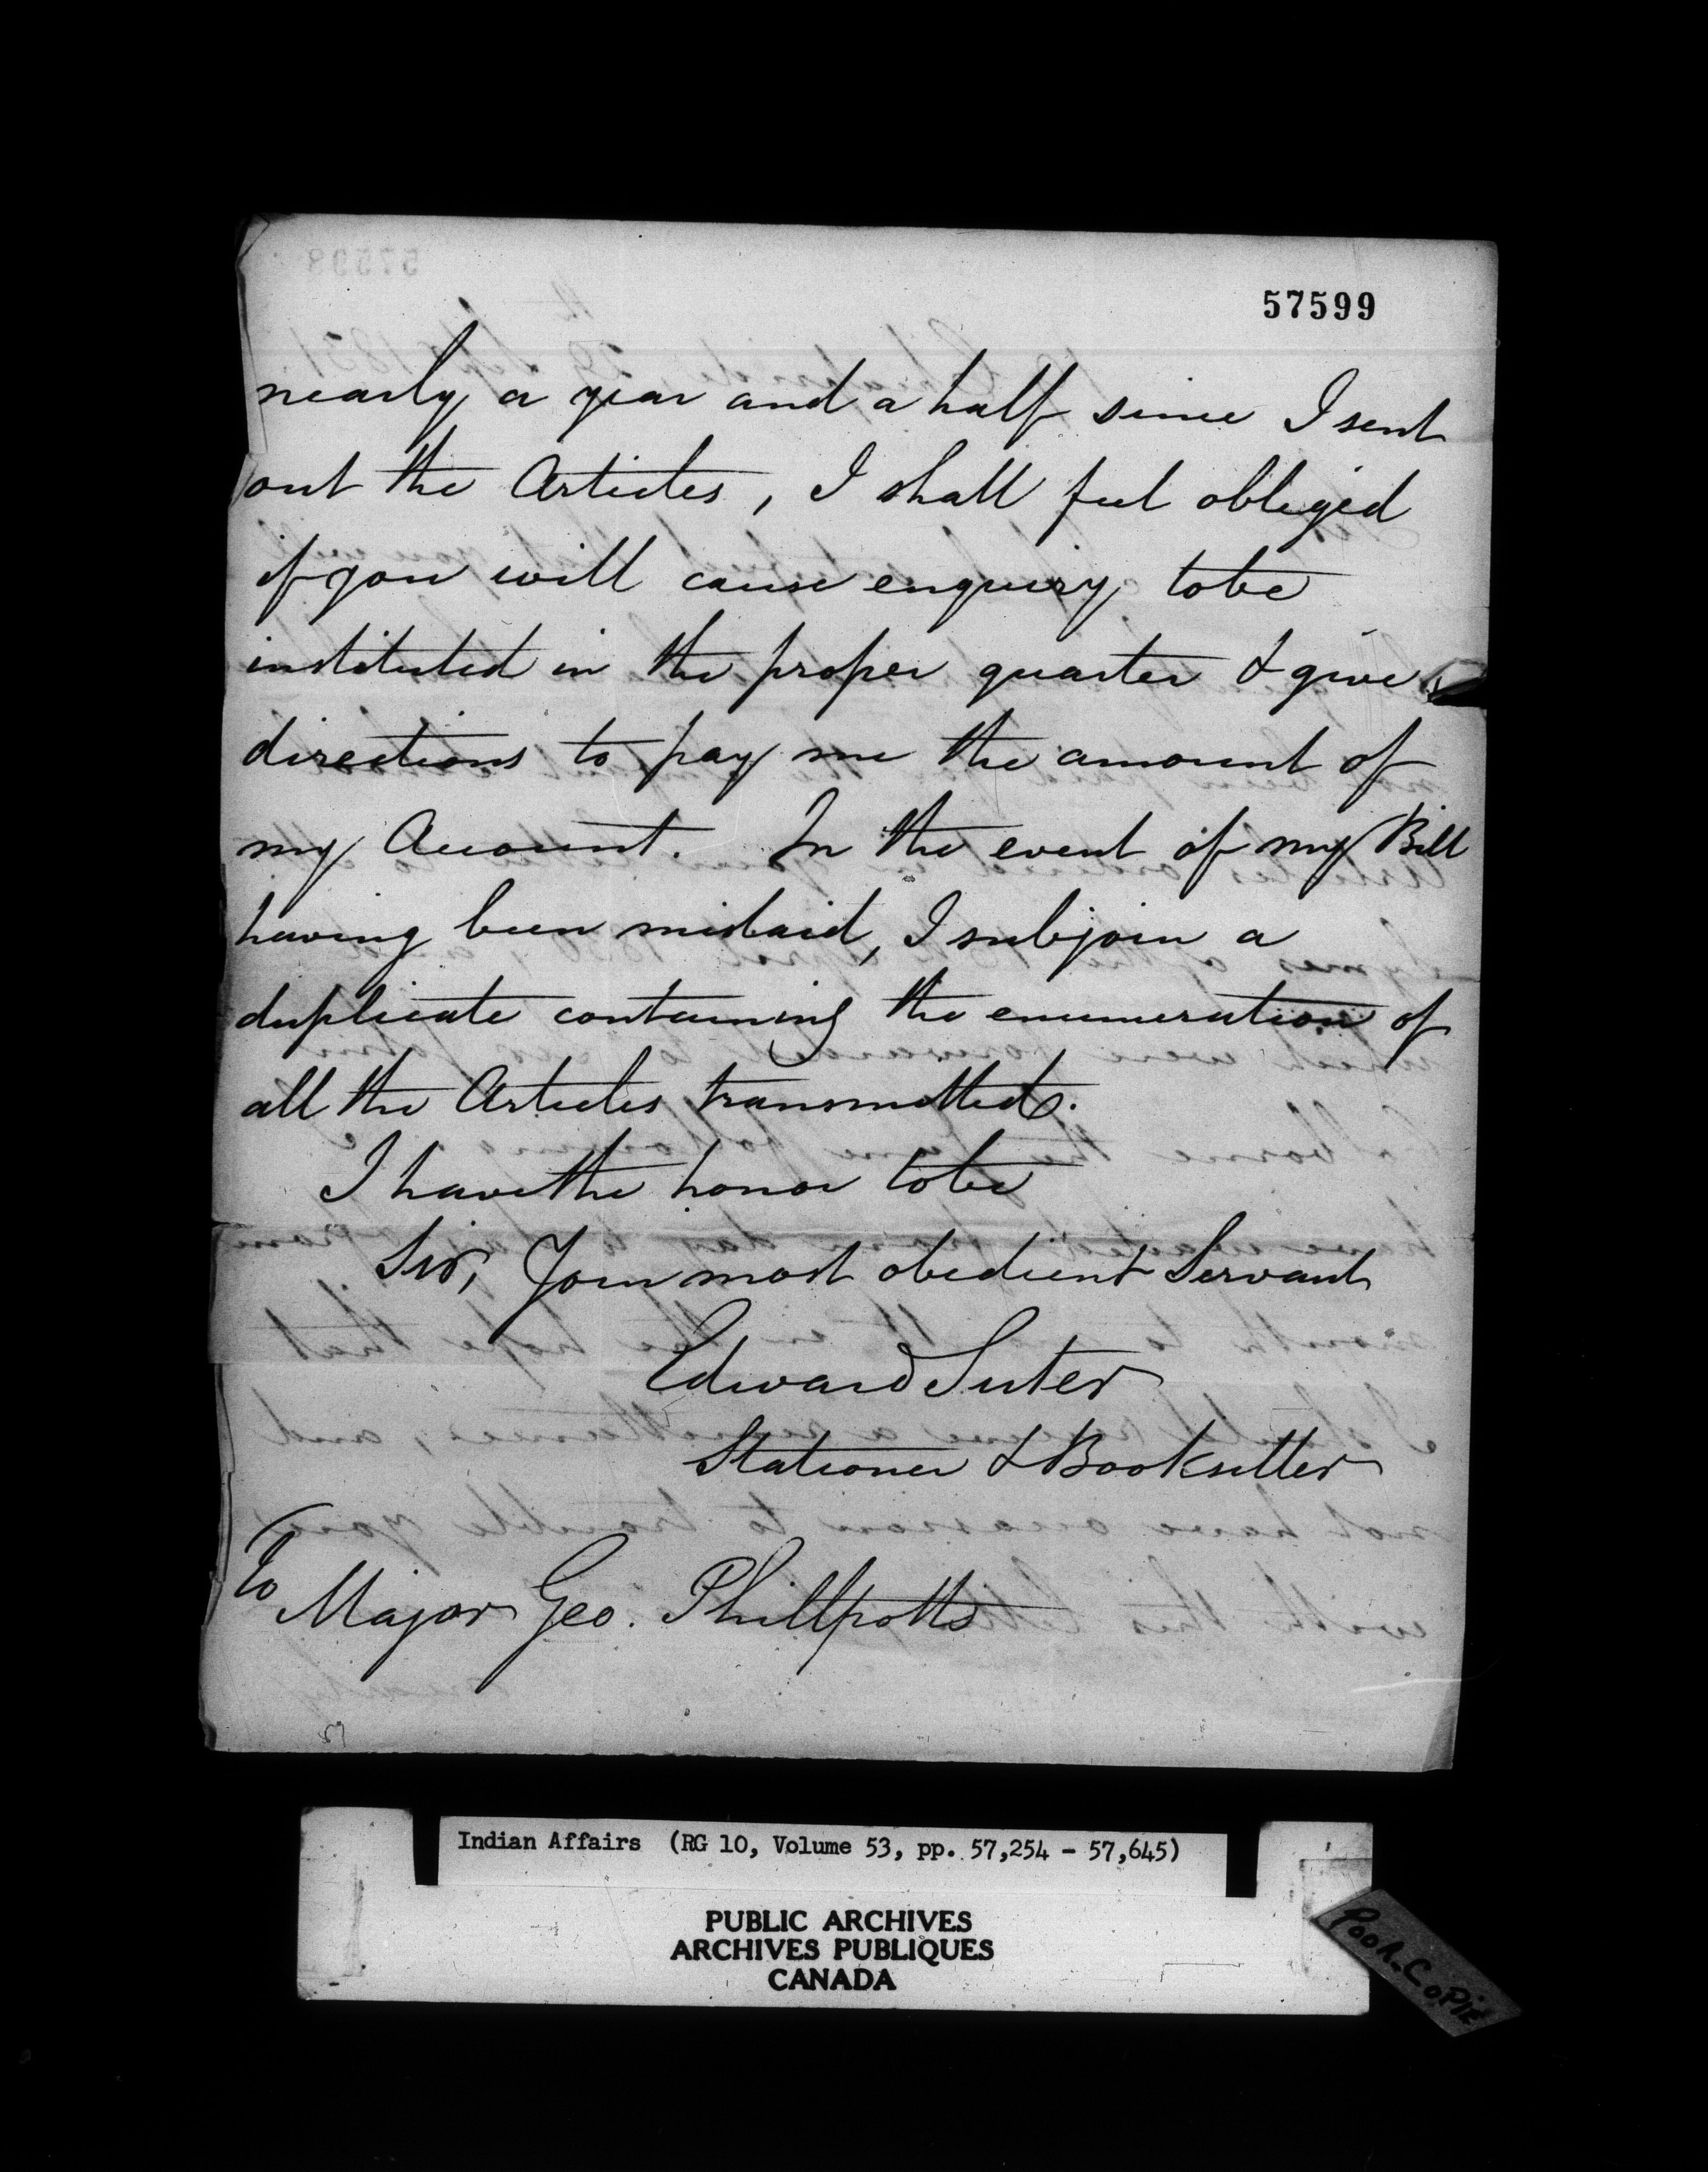 57599
nearly a year and a half since I sent
out the Articles, I shall feel obliged
if you will cause enquiry to be
instituted in the proper quarter & give
directions to pay me the amount of
my Account. In the event of my Bill
having been mislaid, I subjoin a
duplicate containing the enumeration of
all the Articles transmitted.
I have the honor to be
Sir, Your most obedient Servant
Edward Suter
Stationer & Bookseller
To
Major Geo. Phillpotts
Indian Affairs (RG 10, Volume 53, pp. 57,254 - 57,645)
PUBLIC ARCHIVES
ARCHIVES PUBLIQUES
CANADA
POOR COPIE